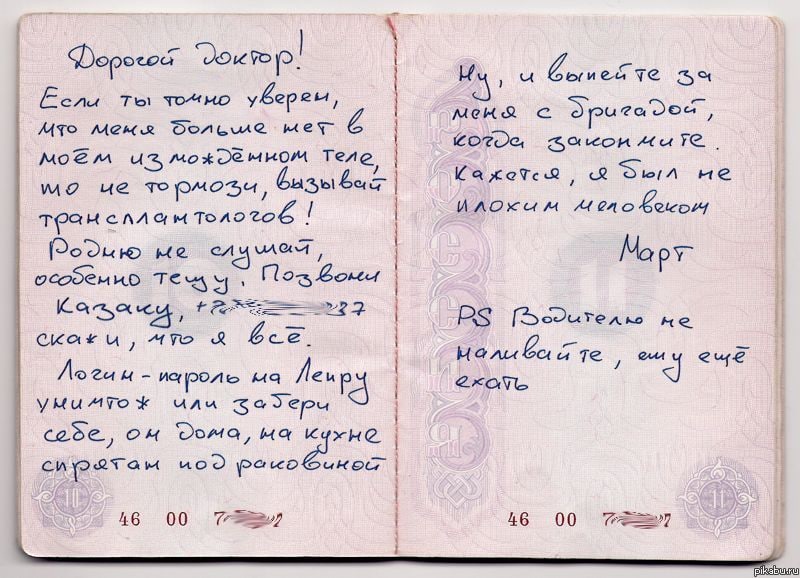 Дорогой доктор!
Если ты точно уверен,
что меня больше нет в
моём измождённом теле,
то не тормози, вызывай
трансплантологов!
Родню не слушай,
особенно тёщу. Позвони
Казаку, +7 37
скажи, что я всё.
Логин-пароль на Лепру
уничтож или забери
себе, он дома, на кухне
спрятан под раковиной
10
46 00 7
Ну, и выпейте за
меня с бригадой,
когда закончите.
Кажется, я был не
плохим человеком
Март
PS Водителю не
наливайте, ему ещё
ехать
11
46 00 7
pikabu.ru